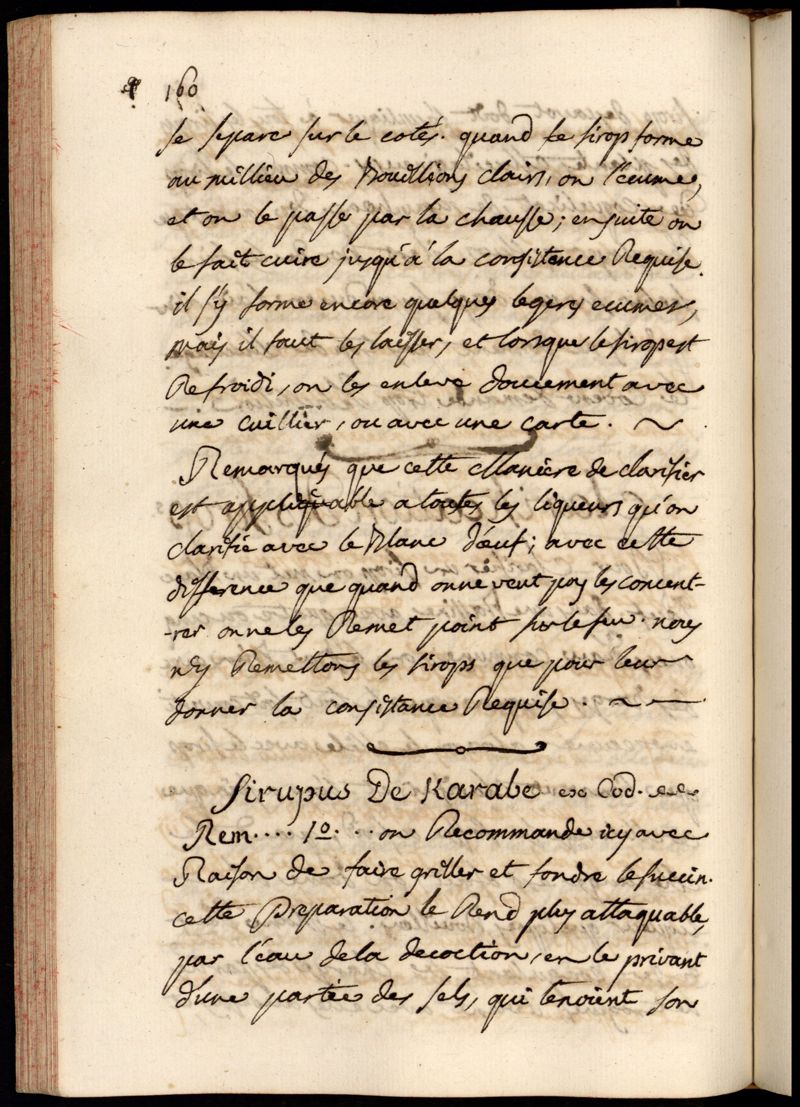 160
se separe sur le cotés. quand le sirop forme
au millieu des Bouillions clairs, on l'ecume,
et on le passe par la chausse; ensuite on
le fait cuire jusqu'à la consistence Requise.
il s'y forme encore quelques legeres ecumes,
mais il faut les laisser, et lorsque le sirop est
Refroidi, on les enleve doucement avec
une cuillier, ou avec une carte.
Remarqués que cette Maniere de clarifier
est appliquable a toutes les liqueurs qu'on
clarifie avec le Blanc d'œuf; avec cette
difference que quand on ne veut pas les concent-
-rer on ne les Remet point sur le feu. nous
n'y Remettons les sirops que pour leur
donner la consistance Requise.
Sirupus De Karabe ex Cod.
Rem.... 1º... on Recommande icy avec
Raison de faire griller et fondre le succin.
cette Preparation le Rend plus attaquable,
par l'eau de la decoction, en le privant
d'une partie des sels, qui tenoient son